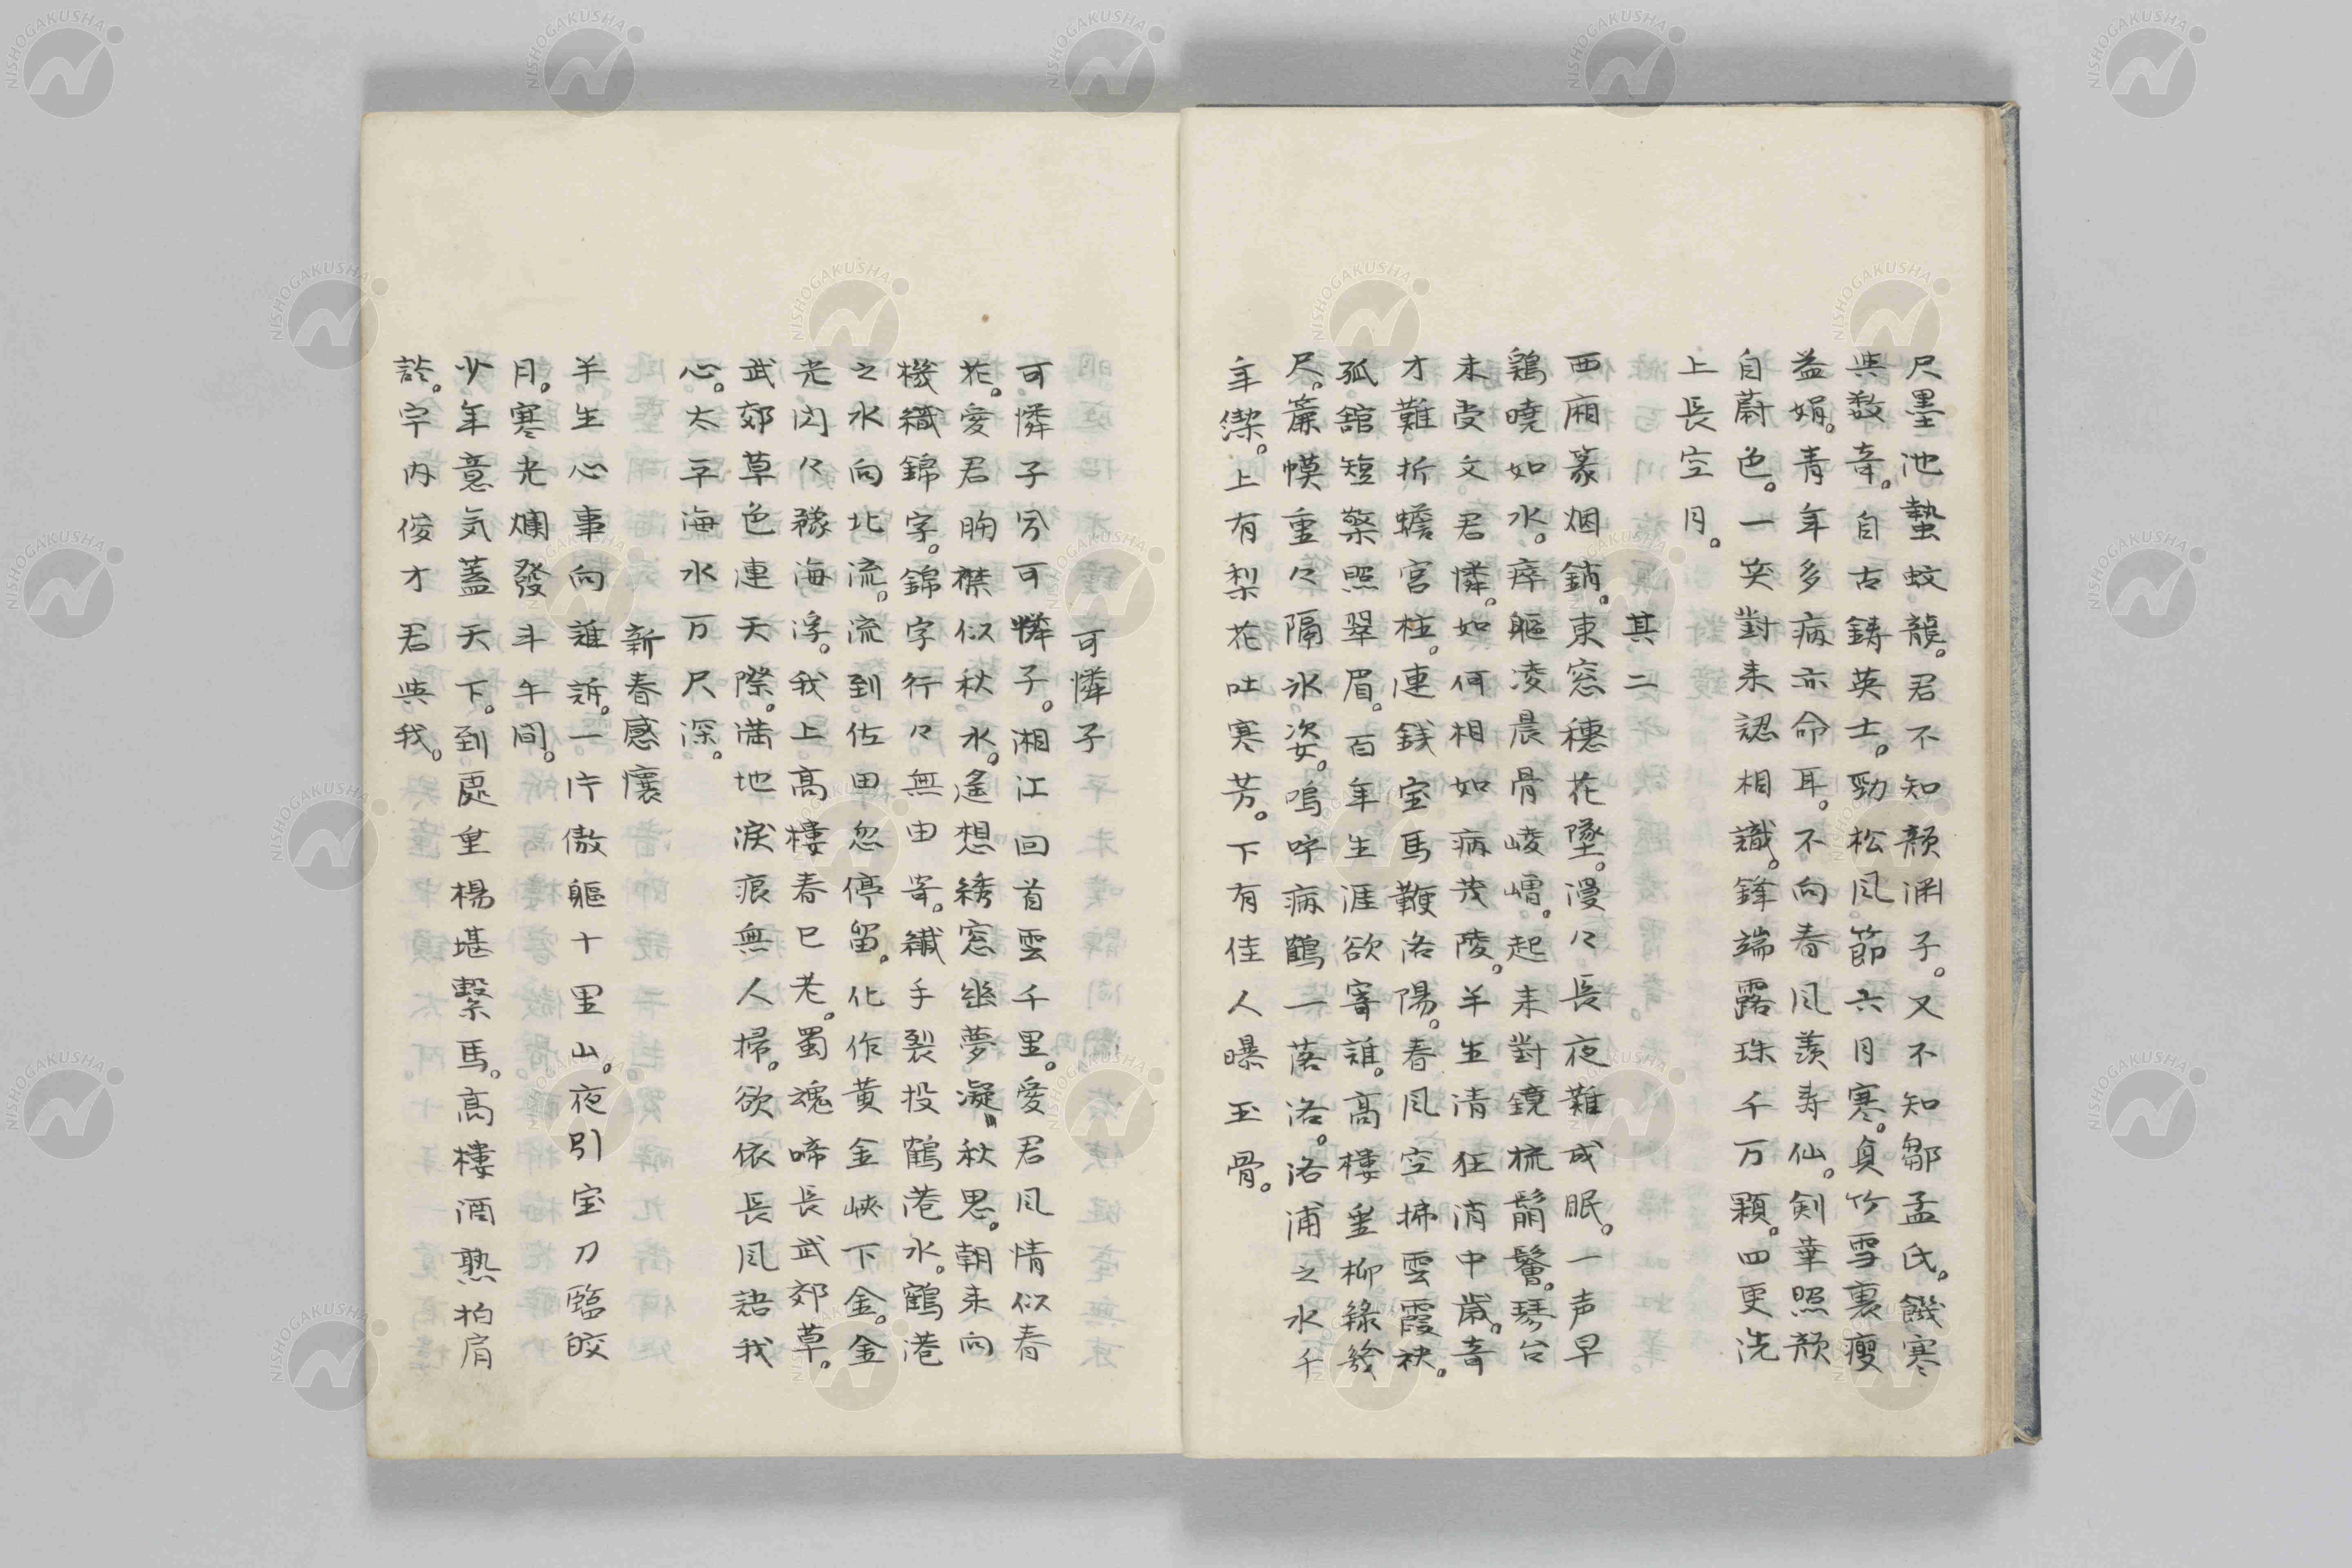 尺墨池蟄蚊龍。君不知顔淵子。又不知鄒孟氏。饑寒
與数奇。自古鋳英士。勁松風節六月寒。貞竹雪裏瘦
益娟。青年多病亦命耳。不向春風羨寿仙。剣華照顔
自蔚色。一笑對来認相識。鋒端露珠千万顆。四更洗
上長空月。
其二
西廂篆烟銷。東窓穗花墜。漫々長夜難成眠。一声早
鶏曉如水。瘁軀凌晨骨崚嶒。起来對鏡梳鬅鬙。琴台
未受文君憐。如何相如病茂陵。半生清狂消中歳。奇
才難折蟾宮桂。連銭宝馬鞭洛陽。春風空拂雲霞袂。
孤舘短檠照翠眉。百年生涯欲寄誰。高樓垂柳綠幾
尺。簾幙重々隔氷姿。嗚呼病鶴一落洛。洛浦之水千
年潔。上有梨花吐寒芳。下有佳人曝玉骨。
可憐子
可憐子兮可憐子。湘江回首雲千里。愛君風情似春
花。愛君胸襟似秋水。遙想綉窓幽夢凝。秋思。朝来向
機織錦字。錦字行々無由寄。纎手裂投鶴港水。鶴港
之水向北流。流到佐田忽停留。化作黄金峡下金。金
光閃々豫海浮。我上高樓春已老。蜀魂啼長武郊草。
武郊草色連天際。満地涙痕無人掃。欲依長風語我
心。太平海水万尺深。
新春感懷
半生心事向誰訴。一片傲軀十里山。夜引宝刀臨皎
月。寒光爛發斗牛間。
少年意気蓋天下。到處垂楊堪繫馬。高樓酒熟拍肩
談。宇内俊才君與我。
NISHOGAKUSHA